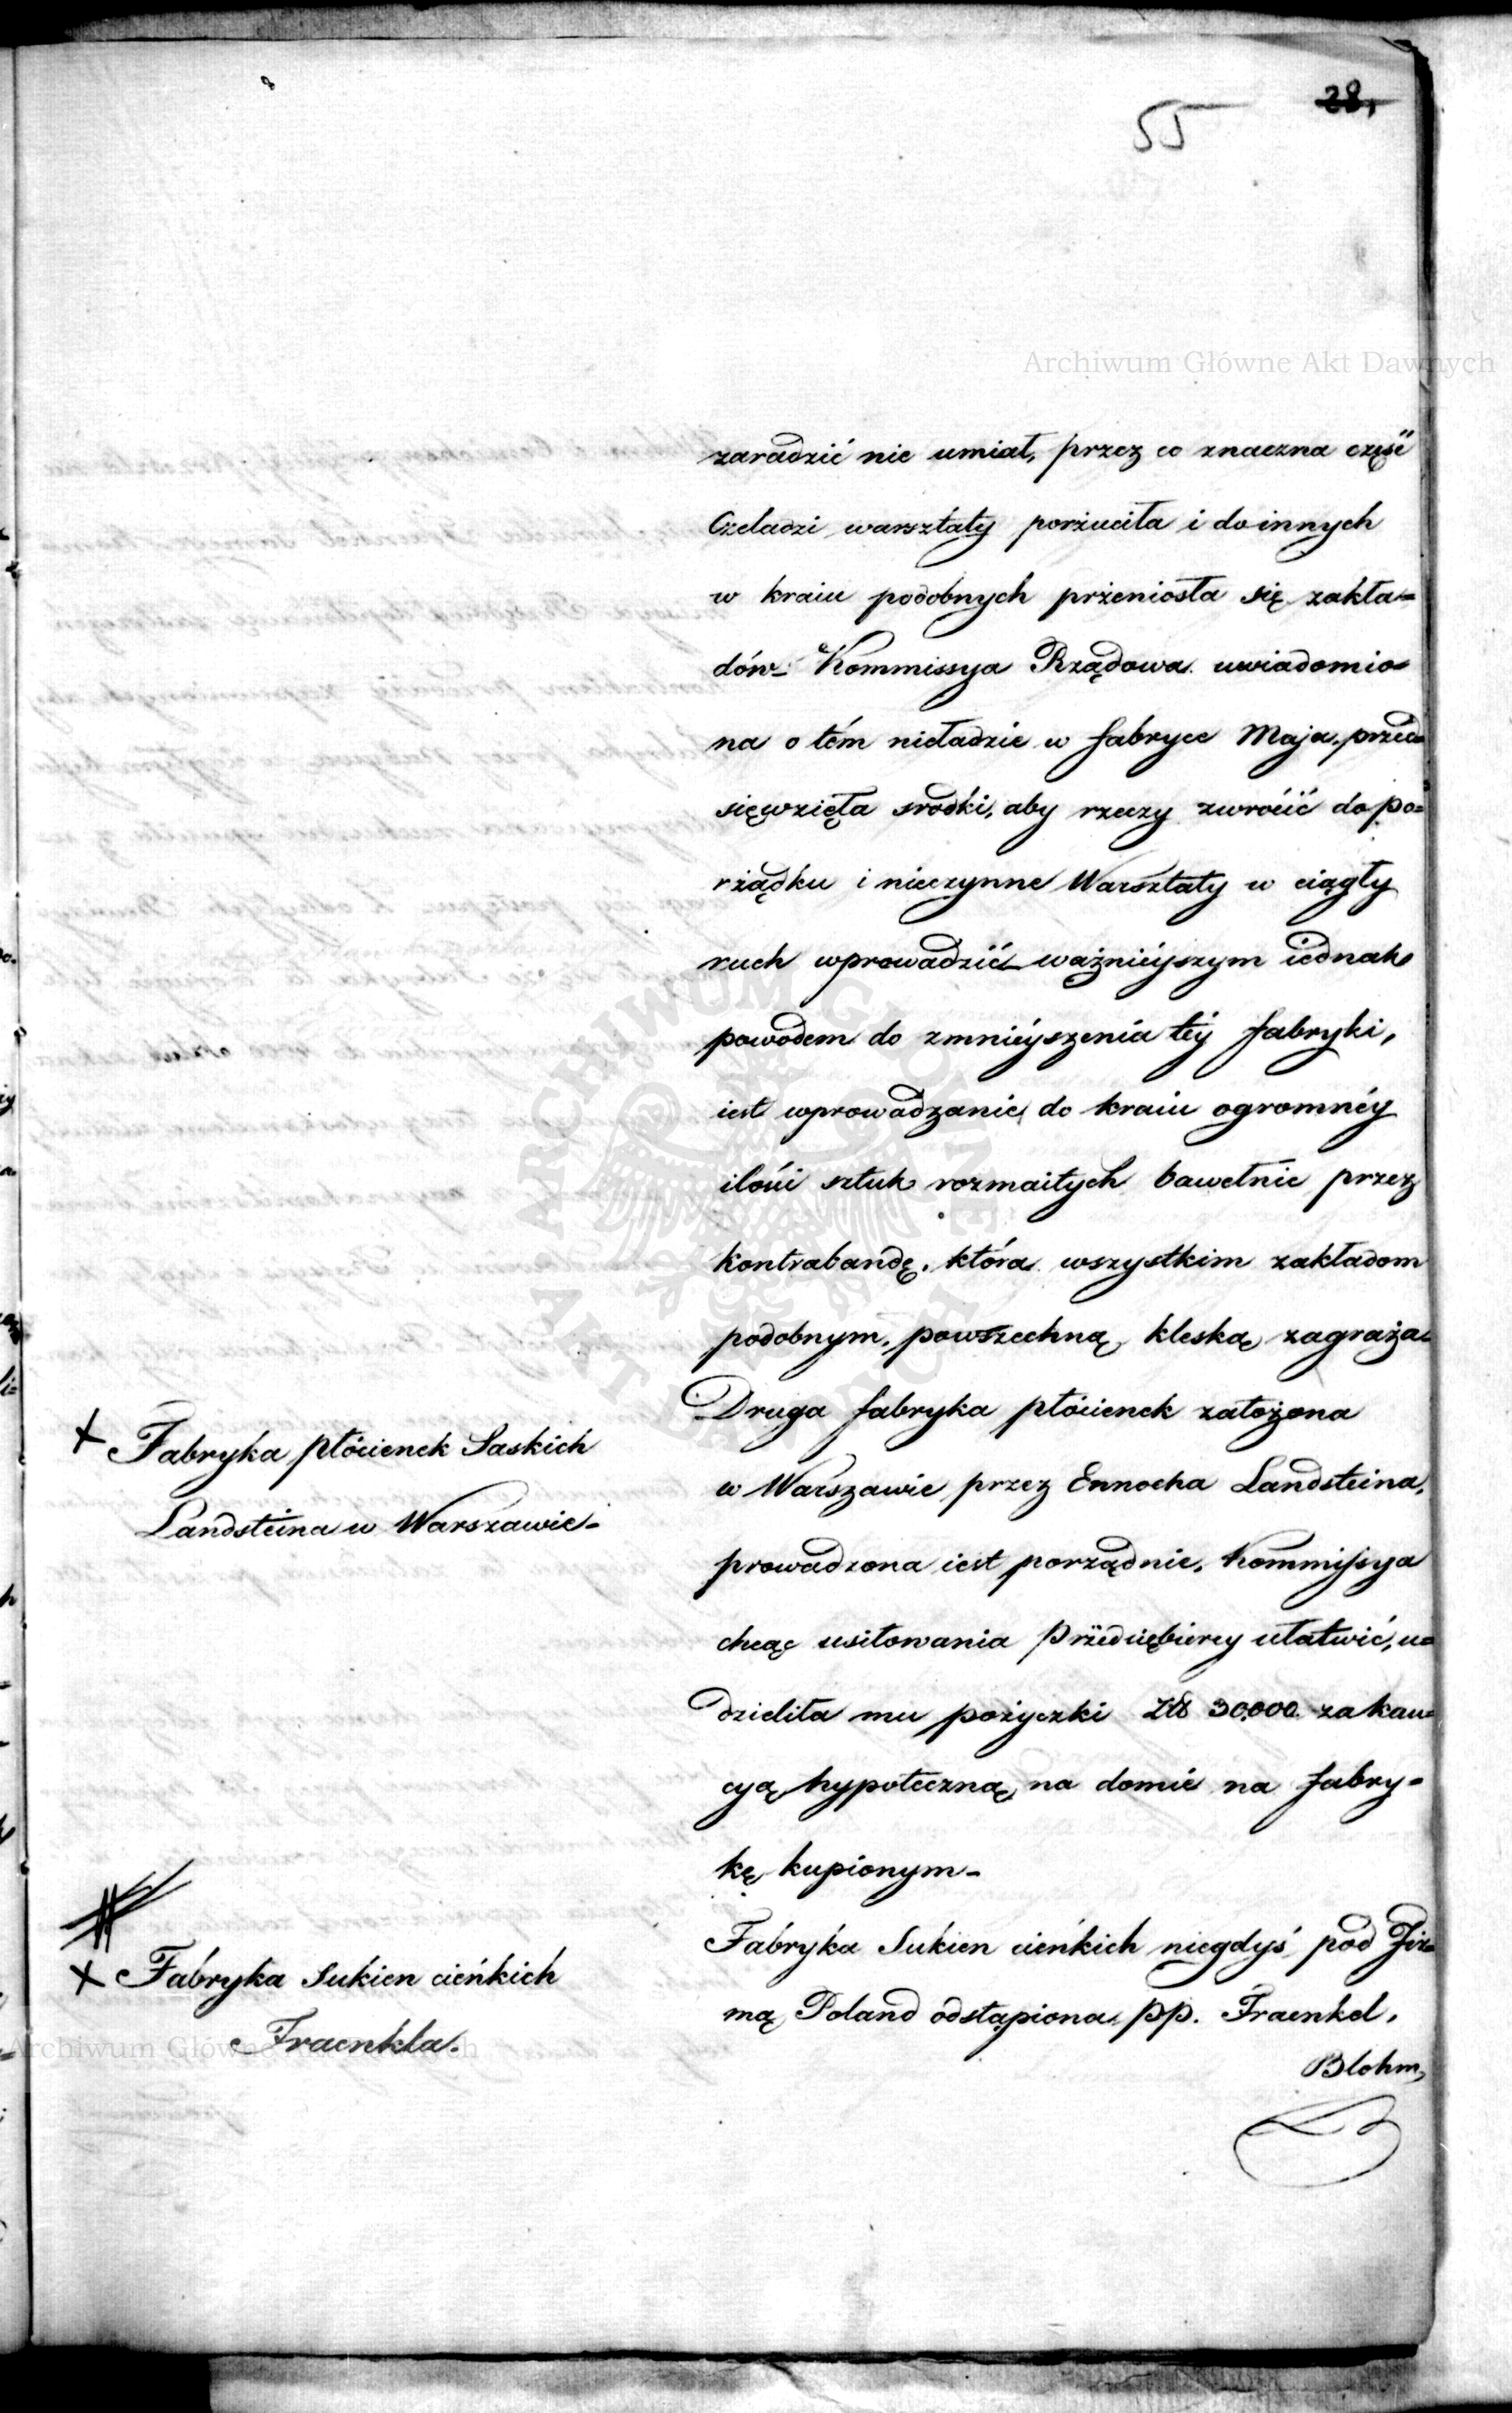 55
28,
Archiwum Główne Akt Dawnych
zaradzić nie umiał, przez co znaczna część
Czeladzi warsztaty porzuciła i do innych
w kraiu podobnych przeniosła się zakła=
dów_ Kommissya Rządowa uwiadomio=
na o tém nieładzie w fabryce Maja, przed=
sięwzięła srodki, aby rzeczy zwrócić do po=
rządku i nieczynne Warsztaty w ciągły
ruch wprowadzić_ ważnieyszym iednak
powodem do zmnieyszenia téy fabryki,
iest wprowadzanie do kraiu ogromnéy
ilości sztuk rozmaitych bawełnic przez
kontrabandę, która wszystkim zakładom
podobnym, powszechną kleską zagraża_
Druga fabryka płócienek założona
w Warszawie przez Ennocha Landsteina,
prowadzona iest porządnie. Kommissya
chcąc usiłowania Przedsiębiercy ułatwić, u=
dzieliła mu pożyczki Złt 30,000 za kau=
cyą hypoteczną na domie na fabry=
kę kupionym_
Fabryka Sukien cieńkich niegdyś pod Fir=
mą Poland odstąpiona pp. Fraenkel,
Blohm,
+ Fabryka płócienek Saskich
Landsteina w Warszawie_
x Fabryka Sukien cieńkich
Fraenkla.
Archiwum Główne Akt Dawnych
ARCHIWUM GŁÓWNE AKT DAWNYCH